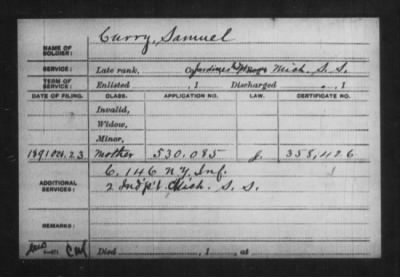 Curry, Samuel
NAME OF SOLDIER:
SERVICE: Late rank, Co Mich. S. S.
TERM OF SERVICE: Enlisted , 1 Discharged , 1
DATE OF FILING. CLASS. APPLICATION NO. LAW. CERTIFICATE NO.
Invalid,
Widow,
Minor,
1891 Oct. 23 Mother 530,085 J. 358,426
C. 146 N.Y. Inf.
ADDITIONAL SERVICES: 2 Ind'p't Mich. S. S.
REMARKS:
Died , 1 , at